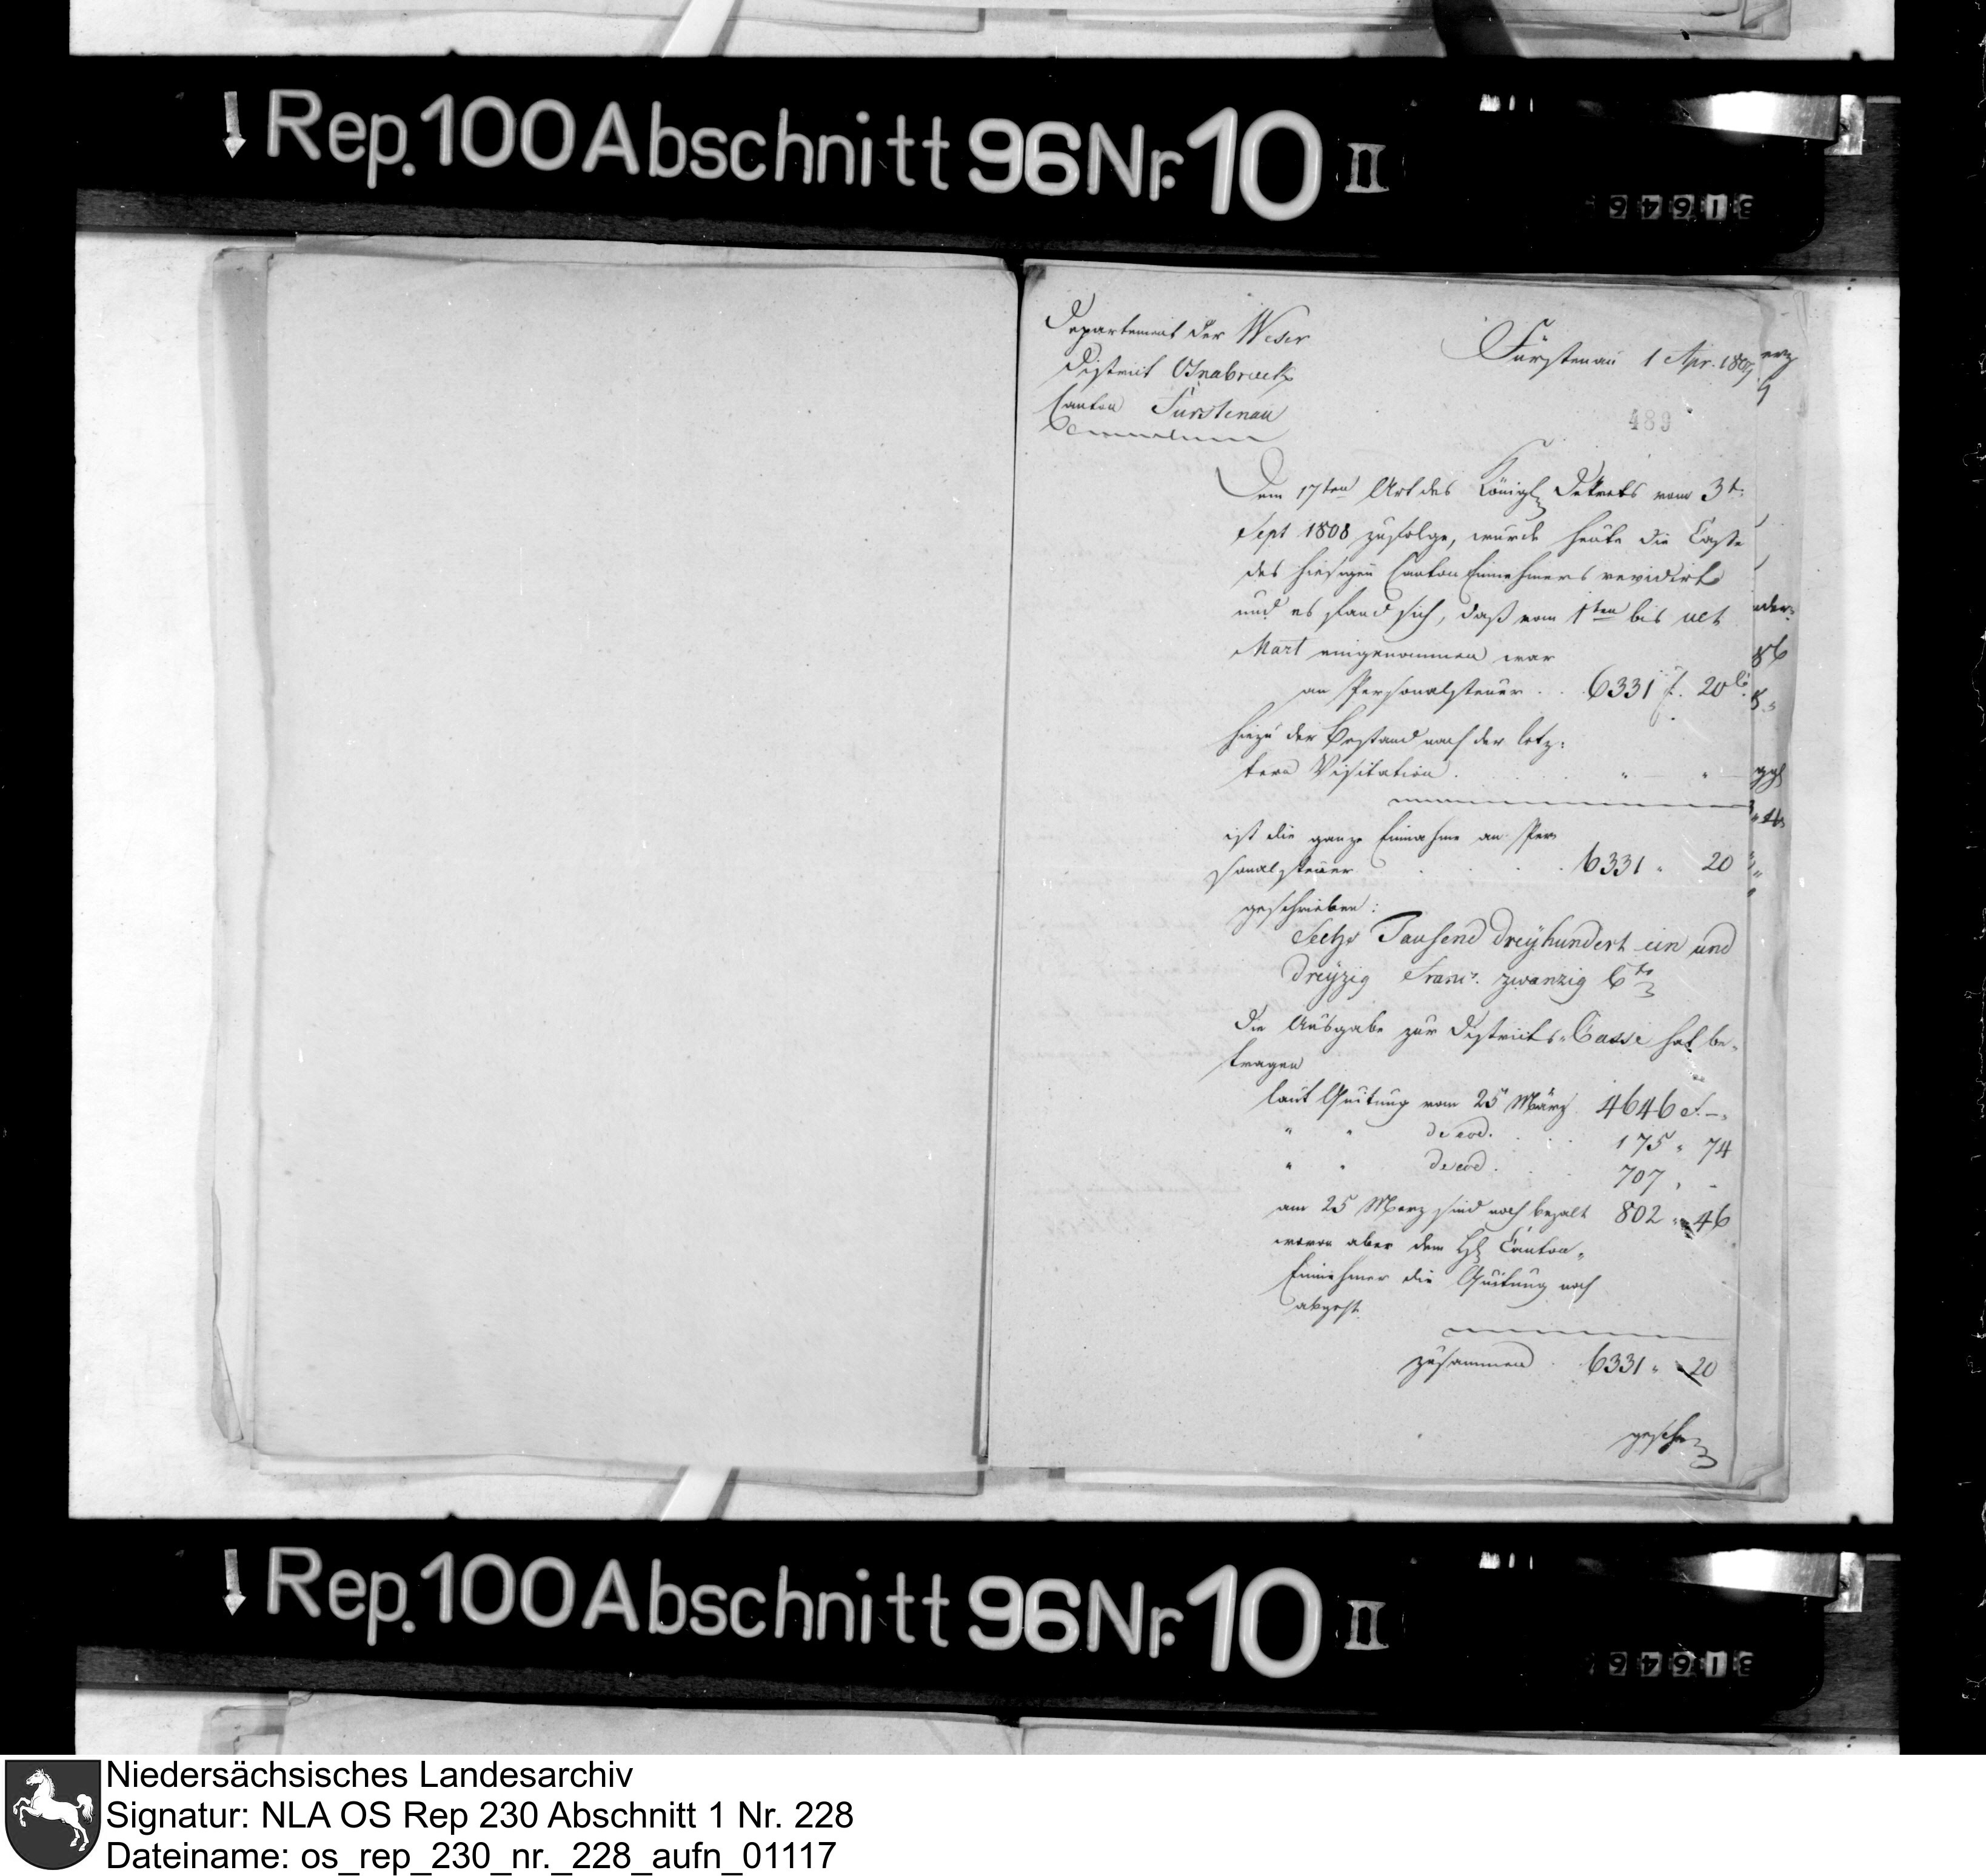 Rep. 100 Abschnitt 96 Nr. 10 II
31646
Departement der Weser
District Osnabrück
Canton Fürstenau
Fürstenau 1 Apr. 1809
489
Dem 17ten Art des Königl Dekrets vom 3t.
Sept 1808 zufolge, wurde heute die Casse
des hiesigen Canton Einnehmers revidirt
und es fand sich, daß vom 1ten bis ult
Mart eingenommen war
an Personalsteuer . . 6331 f. 20 C.
hiezu der Bestand nach der letz:
tern Visitation . . . " — " —
ist die ganze Einnahme an Per
sonalsteuer . . . . 6331 " 20
geschrieben:
Sechs Tausend dreyhundert ein und
dreyzig Franc. zwanzig Cts
Die Ausgabe zur Districts-Casse hat be-
tragen
laut Quitung vom 25 März 4646 f. –
" " de eod. . . 175 " 74
" " de eod. . . 707 " -
am 25 Merz sind noch bezalt 802 " 46
wovon aber dem H Canton-
Einnehmer die Quitung noch
abgeht
zusammen . 6331 " 20
geschr
Rep. 100 Abschnitt 96 Nr. 10 II
31646
Niedersächsisches Landesarchiv
Signatur: NLA OS Rep 230 Abschnitt 1 Nr. 228
Dateiname: os_rep_230_nr._228_aufn_01117